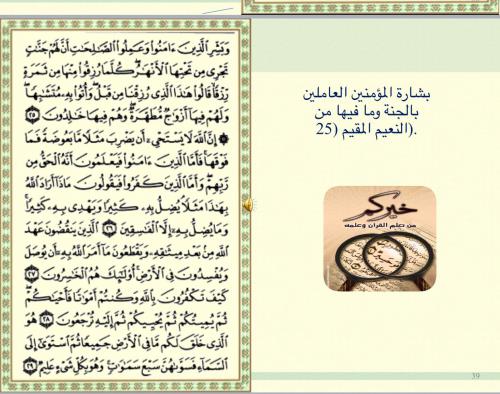 وَبَشِّرِ ٱلَّذِينَ ءَامَنُوا۟ وَعَمِلُوا۟ ٱلصَّـٰلِحَـٰتِ أَنَّ لَهُمْ جَنَّـٰتٍ
تَجْرِى مِن تَحْتِهَا ٱلْأَنْهَـٰرُ ۖ كُلَّمَا رُزِقُوا۟ مِنْهَا مِن ثَمَرَةٍ
رِّزْقًا ۙ قَالُوا۟ هَـٰذَا ٱلَّذِى رُزِقْنَا مِن قَبْلُ ۖ وَأُتُوا۟ بِهِۦ مُتَشَـٰبِهًا ۖ
وَلَهُمْ فِيهَآ أَزْوَٰجٌ مُّطَهَّرَةٌ ۖ وَهُمْ فِيهَا خَـٰلِدُونَ ٢٥
۞ إِنَّ ٱللَّهَ لَا يَسْتَحْىِۦٓ أَن يَضْرِبَ مَثَلًا مَّا بَعُوضَةً فَمَا
فَوْقَهَا ۚ فَأَمَّا ٱلَّذِينَ ءَامَنُوا۟ فَيَعْلَمُونَ أَنَّهُ ٱلْحَقُّ مِن
رَّبِّهِمْ ۖ وَأَمَّا ٱلَّذِينَ كَفَرُوا۟ فَيَقُولُونَ مَاذَآ أَرَادَ ٱللَّهُ
بِهَـٰذَا مَثَلًا ۘ يُضِلُّ بِهِۦ كَثِيرًا وَيَهْدِى بِهِۦ كَثِيرًا ۚ
وَمَا يُضِلُّ بِهِۦٓ إِلَّا ٱلْفَـٰسِقِينَ ٢٦ ٱلَّذِينَ يَنقُضُونَ عَهْدَ
ٱللَّهِ مِنۢ بَعْدِ مِيثَـٰقِهِۦ وَيَقْطَعُونَ مَآ أَمَرَ ٱللَّهُ بِهِۦٓ أَن يُوصَلَ
وَيُفْسِدُونَ فِى ٱلْأَرْضِ ۚ أُو۟لَـٰٓئِكَ هُمُ ٱلْخَـٰسِرُونَ ٢٧
كَيْفَ تَكْفُرُونَ بِٱللَّهِ وَكُنتُمْ أَمْوَٰتًا فَأَحْيَـٰكُمْ ۖ
ثُمَّ يُمِيتُكُمْ ثُمَّ يُحْيِيكُمْ ثُمَّ إِلَيْهِ تُرْجَعُونَ ٢٨ هُوَ
ٱلَّذِى خَلَقَ لَكُم مَّا فِى ٱلْأَرْضِ جَمِيعًا ثُمَّ ٱسْتَوَىٰٓ إِلَى
ٱلسَّمَآءِ فَسَوَّىٰهُنَّ سَبْعَ سَمَـٰوَٰتٍ ۚ وَهُوَ بِكُلِّ شَىْءٍ عَلِيمٌ ٢٩
بشارة المؤمنين العاملين
بالجنة وما فيها من
النعيم المقيم (25).
خيركم
من تعلم القرآن وعلمه
39